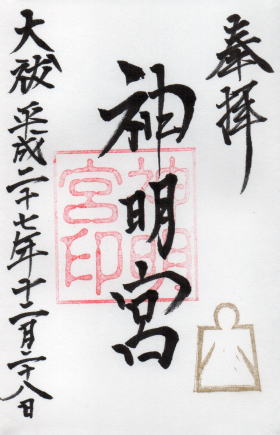 奉拝
神明宮
神明宮印
大祓 平成二十七年十二月二十八日